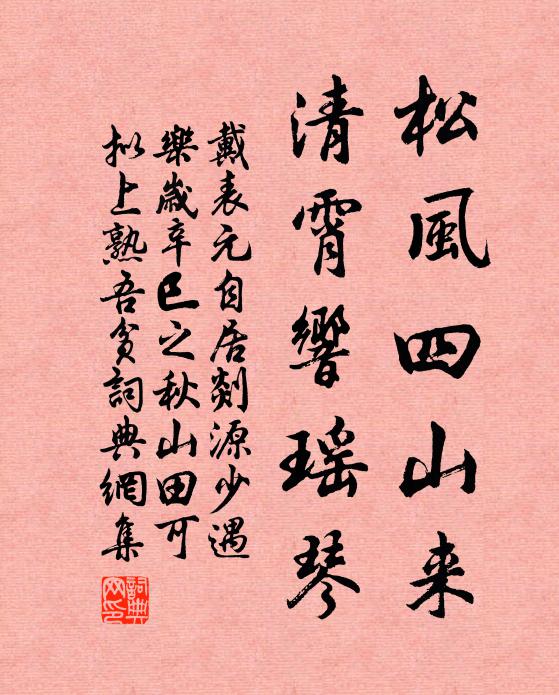 松風四山来
清霄響瑶琴
戴表元自居剡源少遇
樂歲辛巳之秋山田可
拟上熟吾贫詞典網集
詞典网印